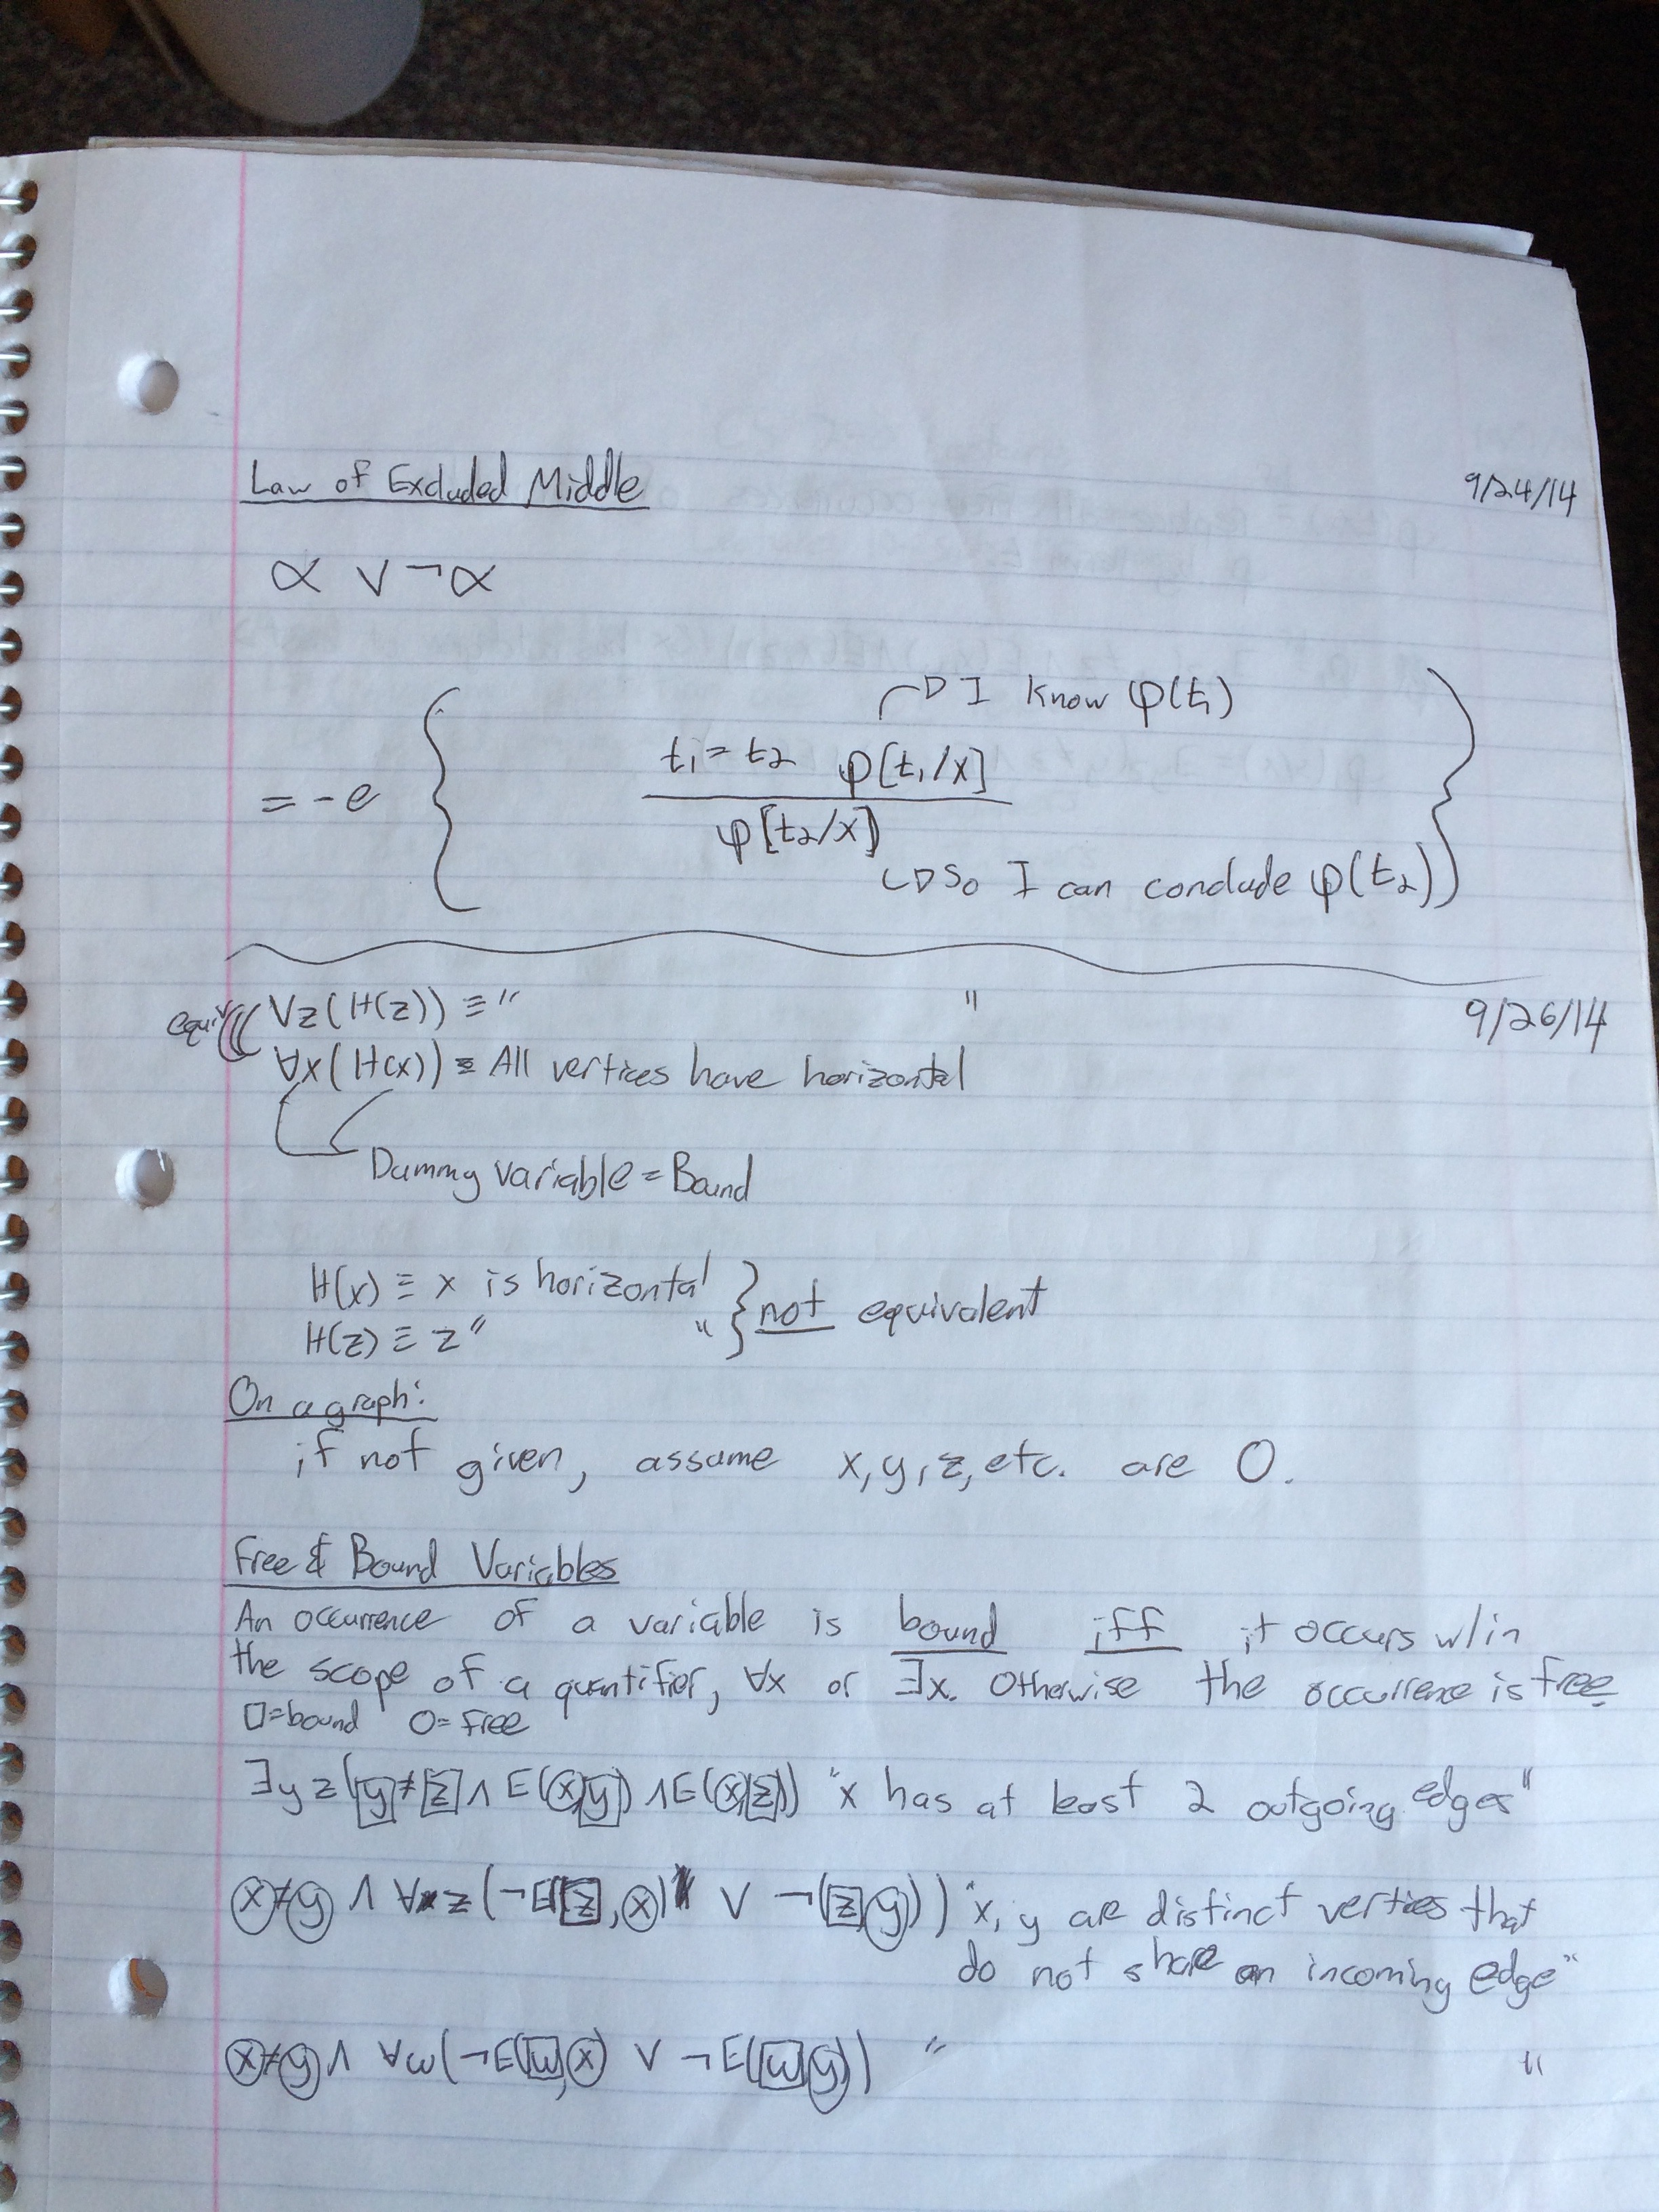 Law of Excluded Middle 9/24/14
α ∨ ¬α
I know φ(t₁)
t₁ = t₂ φ[t₁/x]
= -e
φ[t₂/x]
So I can conclude φ(t₂)
equiv ∀z(H(z)) ≡ " " 9/26/14
∀x(H(x)) ≡ All vertices have horizontal
Dummy variable = Bound
H(x) ≡ x is horizontal
not equivalent
H(z) ≡ z " "
On a graph:
if not given, assume x, y, z, etc. are 0.
Free & Bound Variables
An occurrence of a variable is bound iff it occurs w/in
the scope of a quantifier, ∀x or ∃x. Otherwise the occurrence is free
□=bound O=free
∃y z(y≠z ∧ E(x,y) ∧ E(x,z)) "x has at least 2 outgoing edges"
x≠y ∧ ∀z(¬E(z,x) ∨ ¬(z,y)) "x, y are distinct vertices that
do not share an incoming edge"
x≠y ∧ ∀w(¬E(w,x) ∨ ¬E(w,y)) " "